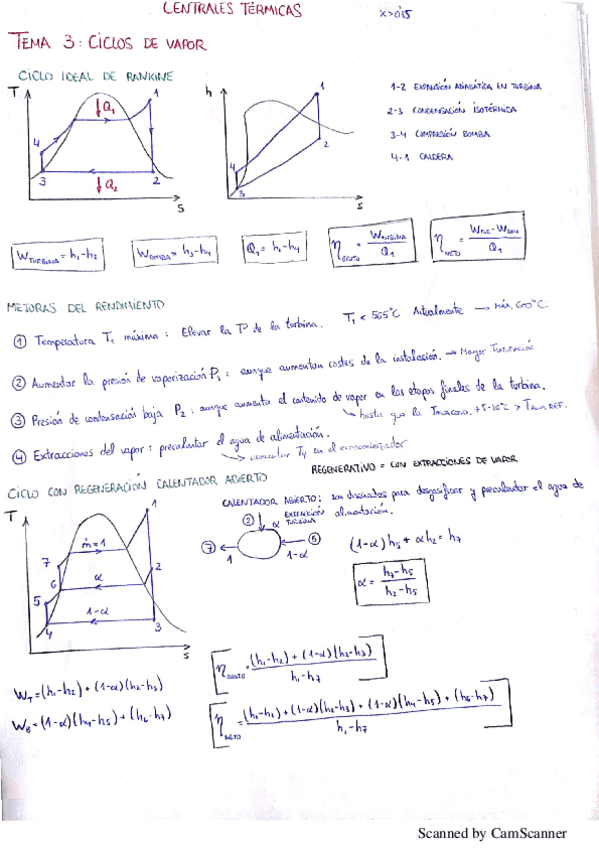 CENTRALES TÉRMICAS
x>0'15
TEMA 3: CICLOS DE VAPOR
CICLO IDEAL DE RANKINE
T
h
1
2
3
4
Q1
Q2
s
1
2
3
4
s
1-2 EXPANSIÓN ADIABÁTICA EN TURBINA
2-3 CONDENSACIÓN ISOTÉRMICA
3-4 COMPRESIÓN BOMBA
4-1 CALDERA
W TURBINA = h1-h2
W BOMBA = h3-h4
Q1 = h1-h4
η BRUTO = W TURBINA / Q1
η NETO = / Q1
MEJORAS DEL RENDIMIENTO
① Temperatura T1 máxima: Elevar la Tª de la turbina. T1 < 565°C Actualmente → Máx. 600°C.
② Aumentar la presión de vaporización P1: aunque aumentan costes de la instalación. → Mayor
③ Presión de condensación baja P2: aunque aumenta el contenido de vapor en las etapas finales de la turbina.
hasta que la +5-10°C >
④ Extracciones del vapor: precalentar el agua de alimentación.
→ aumentar T4 en el economizador
REGENERATIVO = CON EXTRACCIONES DE VAPOR
CICLO CON REGENERACIÓN CALENTADOR ABIERTO
CALENTADOR ABIERTO: son para desgasificar y precalentar el agua de
alimentación.
② α EXTRACCIÓN TURBINA
⑦
1
⑤
1-α
(1-α)h5 + αh2 = h7
α = h7-h5 / h2-h5
T
1
ṁ=1
7
α
2
6
5
1-α
4
3
s
WT = (h1-h2) + (1-α)(h2-h3)
WB = (1-α)(h4-h5) + (h6-h7)
η BRUTO = (h1-h2) + (1-α)(h2-h3) / h1-h7
η NETO = (h1-h2) + (1-α)(h2-h3) + (1-α)(h4-h5) + (h6-h7) / h1-h7
Scanned by CamScanner